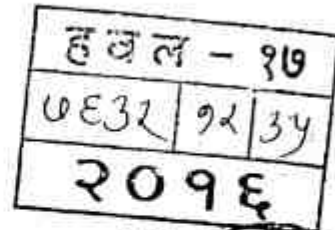 हवल - १७
७६३२ १२ ३५
२०१६